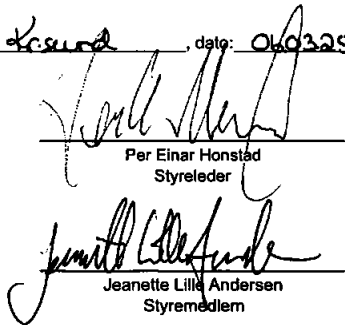 Kr.sund, dato: 060325
Per Einar Honstad
Styreleder
Jeanette Lille Andersen
Styremedlem